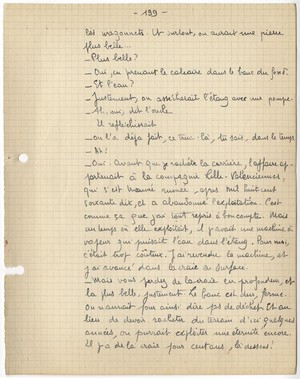 - 199 -
les wagonnets. Et surtout, on aurait une pierre
plus belle...
- Plus belle ?
- Oui, en prenant le calcaire dans le banc du fond.
- Et l'eau ?
- Justement, on assècherait l'étang avec une pompe.
- Ah, oui, dit l'oncle.
Il réfléchissait
- On l'a déjà fait, ce truc-là, tu sais, dans le temps.
- Ah !
- Oui. Avant que je rachète la carrière, l'affaire ap-
partenait à la compagnie Lille-Valenciennes,
qui s'est trouvée ruinée, après mil huit cent
soixante dix, et a abandonné l'exploitation. C'est
comme ça que j'ai tout repris à bon compte. Mais
au temps où elle exploitait, il y avait une machine à
vapeur qui puisait l'eau dans l'étang. Pour moi,
c'était trop coûteux. J'ai revendu la machine, et
j'ai avancé dans la craie de surface.
- Mais vous perdez de la craie en profondeur, et
la plus belle, justement. Le banc est dur, ferme.
On n'aurait pour ainsi dire pas de déchet. Et au
lieu de devoir racheter du terrain d'ici quelques
années, on pourrait exploiter une éternité encore.
Il y a de la craie pour cent ans, là-dessous !